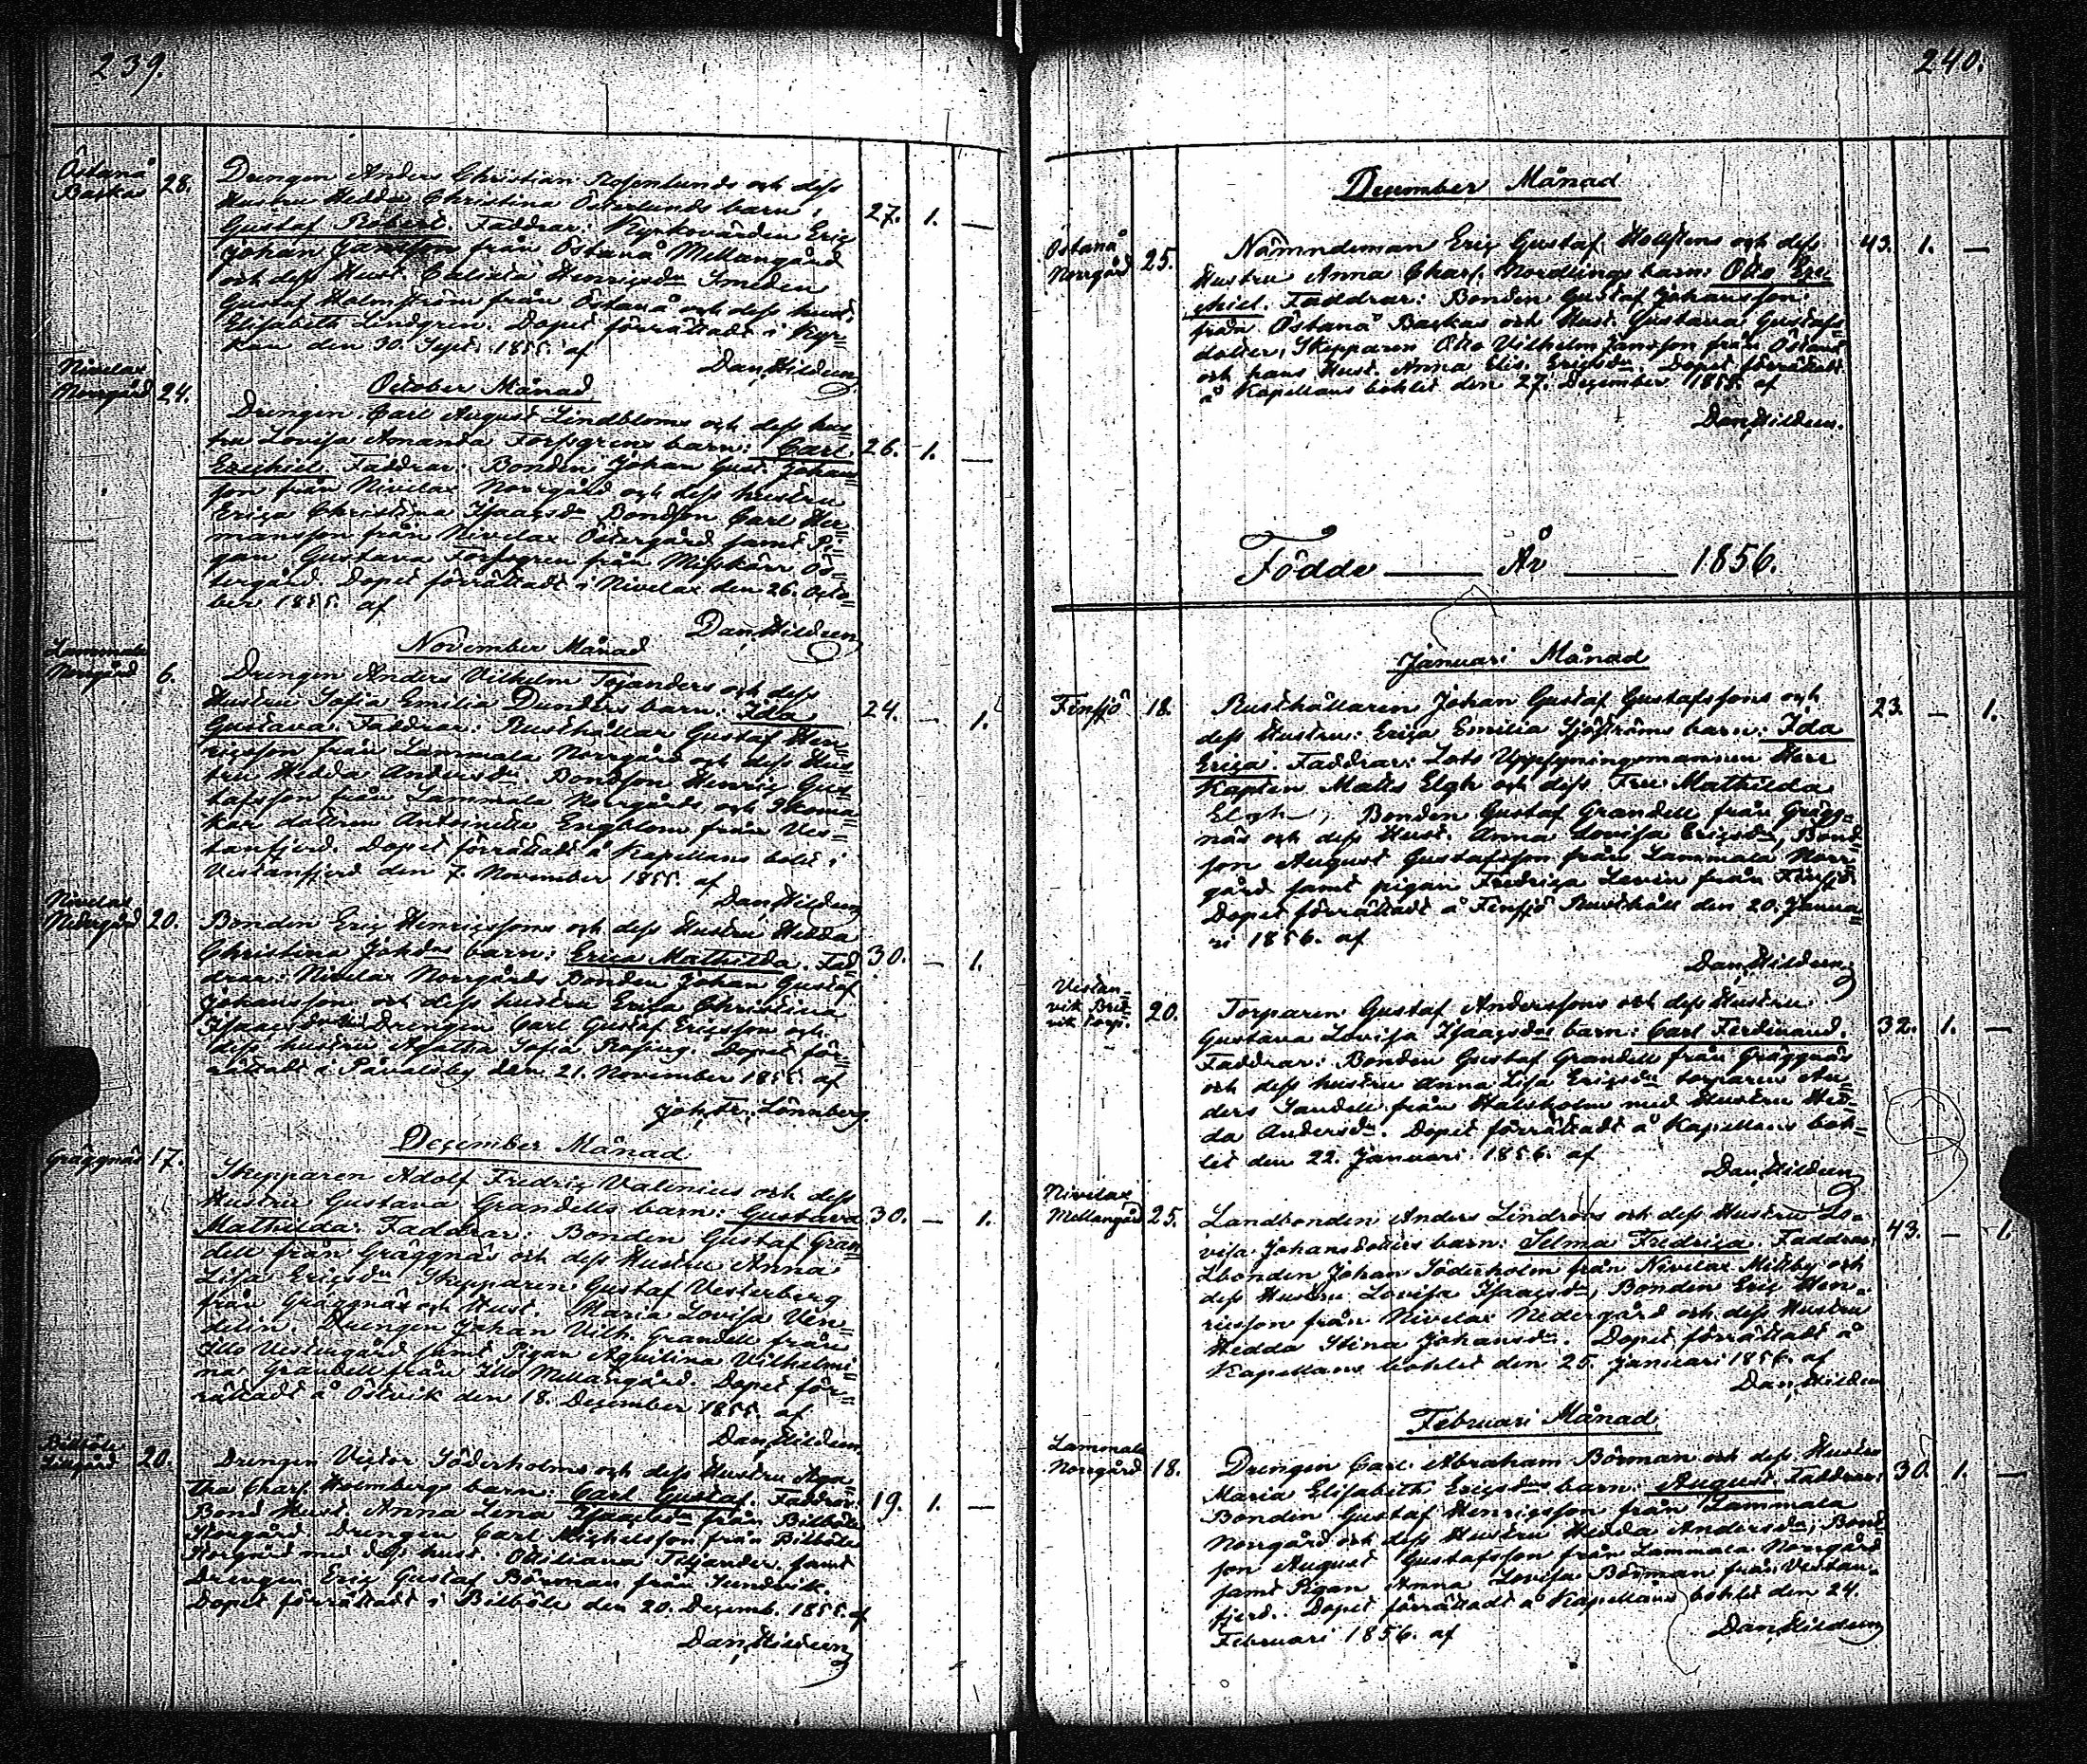 239.
Östanå
Backas
28.
Drengen Anders Christian Rosenlunds och dess
Hustru Hedda Christina Österlunds barn,
Gustaf Robert. Faddrar: Kyrkovärden Eric
Johan Jansson från Östanå Mellangård
och dess Hust. Henricsdr Smeden
Gustaf Helmström från Östanå och dess hust.
Elisabeth Lindgren. Dopet förrättadt i Kyr=
kan den 30. Sept. 1855. af
Dan. Hildeen
27. 1. —
October Månad
Nivelax
Norrgård
24.
Drengen Carl August Lindbloms och dess hus=
tru Lovisa Amanda Forssgrens barn: Carl
Ezechiel. Faddrar: Bonden Johan Gust. Johans=
son från Nivelax Norrgård och dess hustru
Erica Christina Isaacsdr Bondson Carl Her=
mansson från Nivelax Östergård samt Pi=
gan Gustava Forssgren från Misskärr Ös=
tergård. Dopet förrättadt i Nivelax den 26. Octo=
ber 1855. af
Dan. Hildeen
26. 1. —
November Månad
Lammala
Norrgård
6.
Drengen Anders Vilhelm Töjanders och dess
Hustru Sofia Emilia Dunders barn: Ida
Gustava. Faddrar: Rusthållar Gustaf Hen=
ricsson från Lammala Norrgård och dess Hus=
tru Hedda Andersdr. Bondson Henric Gus=
tafsson från Lammala Norrgårds och Skoma=
kar dottren Antoinette Engblom från Ves=
tanfjerd. Dopet förrättadt å Kapellans bolet i
Vestanfjerd den 7. November 1855. af
Dan. Hildeen
24. — 1.
Nivelax
Nedergård
20.
Bonden Eric Henricssons och dess Hustru Hedda
Christina Johdrs barn: Erica Mathilda. Fad=
drar: Nivelax Norrgårds Bonden Johan Gustaf
Johansson och dess hustru Erica Christina
Isaacsdotter Drengen Carl Gustaf Ericsson och
dess hustru Agatha Sofia. Dopet för=
rättadt i Påvalsby den 21. November 1855. af
Joh. Fr. Lönnberg.
30. — 1.
December Månad
Gräggnäs
17.
Skepparen Adolf Fredric Valenius och dess
Hustru Gustava Grandells barn: Gustava
Mathilda. Faddrar: Bonden Gustaf Gran=
dell från Gräggnäs och dess Hustru Anna
Lisa Ericsdr Skepparen Gustaf Vesterberg
från Gräggnäs och Hust. Maria Lovisa Ven=
delin. Drengen Johan Vilh. Grandell från
Illo Vestergård samt Pigan Aquilina Vilhelmi=
na Grandell från Illo Mellangård. Dopet för=
rättadt å Östvik den 18. December 1855. af
Dan. Hildeen
30. — 1.
Bilböle
20.
Drengen Victor Söderholms och dess Hustru Aga=
tha Charl. Holmbergs barn: Carl Gustaf. Faddrar:
Bond Hust. Anna Lena Isaacsdr från Bilböle
Norgård Drengen Carl Michelsson från Bilböle
Norgård med dess hust. Ottiliana Töjander samt
Drengen Eric Gustaf Börman från Sundvik.
Dopet förrättadt i Bilböle den 20. Decemb. 1855. af
Dan. Hildeen
19. 1. —
240.
December Månad
Östanå
Norrgård
25.
Nämndeman Eric Gustaf Hollstens och dess
Hustru Anna Charl. Nordlings barn: Otto Eze=
chiel. Faddrar: Bonden Gustaf Johansson
från Östanå Backas och Hust. Gustava Gustafs=
dotter, Skepparen Otto Vilhelm Jansson från Östanå
och hans Hust. Anna Elis. Ericsdr. Dopet förrättadt
å Kapellans bohlet den 27. December 1855. af
Dan. Hildeen.
43. 1. —
Födde — År — 1856.
Januari Månad
Finsjö
18.
Rusthållaren Johan Gustaf Gustafssons och
dess Hustru: Erica Emilia Sjöströms barn: Ida
Erica. Faddrar: Lots Uppsyningsmannen Herr
Kapten Matts Elgh och dess Fru Mathilda
Elgh, Bonden Gustaf Grandell från Grägg=
näs och dess Hust. Anna Lovisa Ericsdr, Bond=
son August Gustafsson från Lammala Norr=
gård samt pigan Fredrica Levin från Finsjö.
Dopet förrättadt å Finsjö Rusthåll den 20. Janua=
ri 1856. af
Dan. Hildeen
23. — 1.
Vestan=
vik Bred=
vik Torp.
20.
Torparen Gustaf Anderssons och dess Hustru
Gustava Lovisa Isaacsdrs barn: Carl Ferdinand.
Faddrar: Bonden Gustaf Grandell från Gräggnäs
och dess hustru Anna Lisa Ericsdr torparen An=
ders Sandell från Halsholm med Hustru Hed=
da Andersdr. Dopet förrättadt å Kapellans boh=
let den 22. Januari 1856. af
Dan. Hildeen
32. 1. —
Nivelax
Mellangård
25.
Landbonden Anders Lindroos och dess Hustru Lo=
visa Johansdotters barn: Selma Fredrica. Faddrar:
Lbonden Johan Söderholm från Nivelax Mittby och
dess Hustru Lovisa Isaacsdr, Bonden Eric Hen=
ricsson från Nivelax Nedergård och dess Hustru
Hedda Stina Johansdr. Dopet förrättadt å
Kapellans bohlet den 25. Januari 1856. af
Dan. Hildeen
43. — 1.
Februari Månad
Lammala
Norrgård
18.
Drengen Carl Abraham Börman och dess Hustru
Maria Elisabeth Ericsdrs barn: August. Faddrar:
Bonden Gustaf Henricsson från Lammala
Norrgård och dess Hustru Hedda Andersdr, Bond=
son August Gustafsson från Lammala Norrgård
samt Pigan Anna Lovisa Börman från Vestan=
fjerd. Dopet förrättadt å Kapellans bohlet den 24.
Februari 1856. af
Dan. Hildeen
30. 1. —